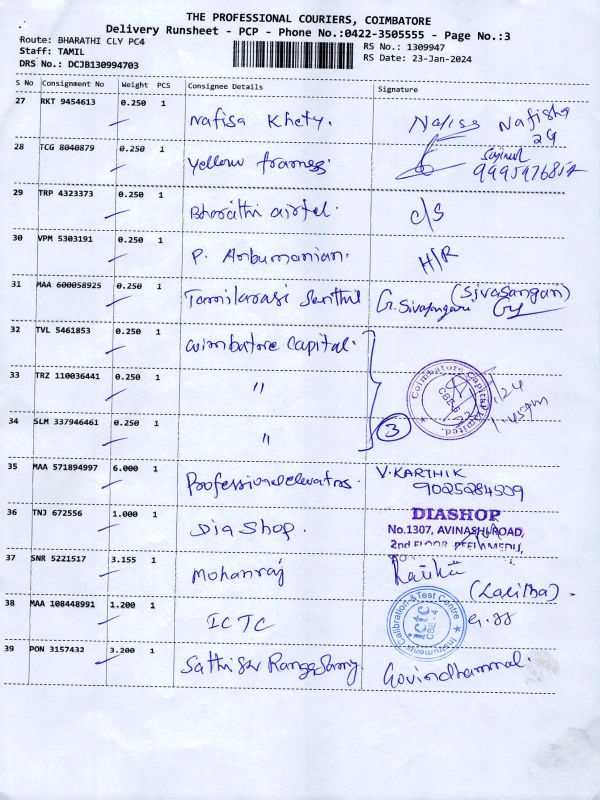 THE PROFESSIONAL COURIERS, COIMBATORE
Delivery Runsheet - PCP - Phone No.:0422-3505555 - Page No.:3
Route: BHARATHI CLY PC4
RS No.: 1309947
Staff: TAMIL
RS Date: 23-Jan-2024
DRS No.: DCJB130994703
S No Consignment No Weight PCS Consignee Details Signature
27 RKT 9454613 0.250 1 Nafisa Khety. Nafisa Nafisha
24
28 TCG 8040879 0.250 1 Yellow frames
29 TRP 4323373 0.250 1 Bharathi airtel. C/S
30 VPM 5303191 0.250 1 P. Anbumanian. H/R
31 MAA 600058925 0.250 1 Tamilarasi Senthil G. Sivasangari (Sivasangari)
32 TVL 5461853 0.250 1 Coimbatore Capital.
33 TRZ 110036441 0.250 1 "
Coimbatore Capital Limited.
CBE-
1.45pm
34 SLM 337946461 0.250 1 "
3
35 MAA 571894997 6.000 1 Professional elevators. V. KARTHIK
9025284509
36 TNJ 672556 1.000 1 Dia Shop. DIASHOP
No.1307, AVINASHI ROAD,
2nd FLOOR, PEELAMEDU,
37 SNR 5221517 3.155 1 Mohanraj
(Lalitha).
38 MAA 108448991 1.200 1 ICTC
Instruments Calibration & Test Centre
ictc
CBE - 4
39 PON 3157432 3.200 1 Sathish Rangasamy. Govindhammal.